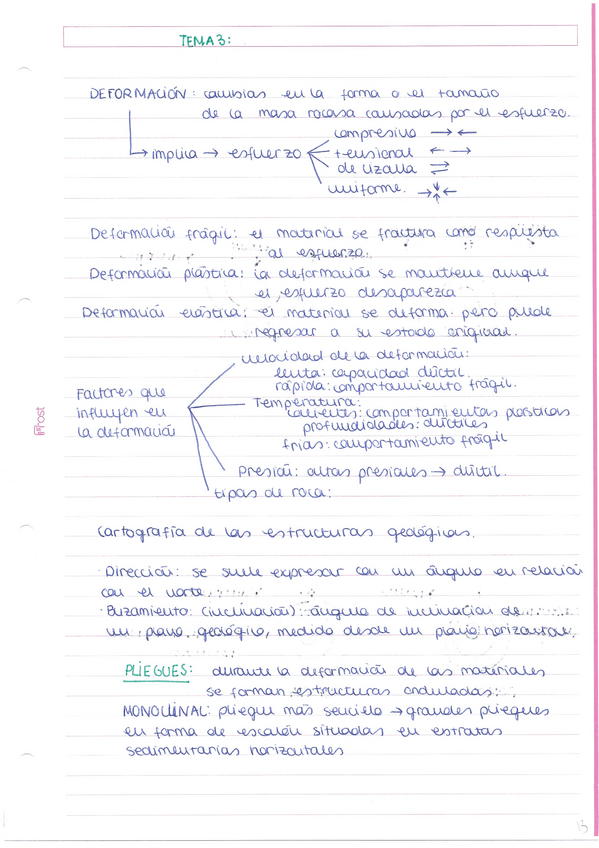 TEMA 3:
DEFORMACIÓN: cambios en la forma o el tamaño
de la masa rocosa causados por el esfuerzo.
→ implica → esfuerzo
compresivo → ←
tensional ← →
de cizalla ⇌
uniforme. → ←
Deformación frágil: el material se fractura como respuesta
al esfuerzo.
Deformación plástica: la deformación se mantiene aunque
el esfuerzo desaparezca
Deformación elástica: el material se deforma pero puede
regresar a su estado original.
Factores que
influyen en
la deformación
velocidad de la deformación:
lenta: capacidad dúctil.
rápida: comportamiento frágil.
Temperatura:
calientes: comportamientos plásticos
profundidades: dúctiles
frías: comportamiento frágil
Presión: altas presiones → dúctil.
tipos de roca:
Cartografía de las estructuras geológicas.
· Dirección: se suele expresar con un ángulo en relación
con el norte
· Buzamiento: (inclinación): ángulo de inclinación de
un plano geológico, medido desde un plano horizontal.
PLIEGUES: durante la deformación de los materiales
se forman estructuras onduladas:
MONOCLINAL: pliegue más sencillo → grandes pliegues
en forma de escalón situados en estratos
sedimentarios horizontales
13